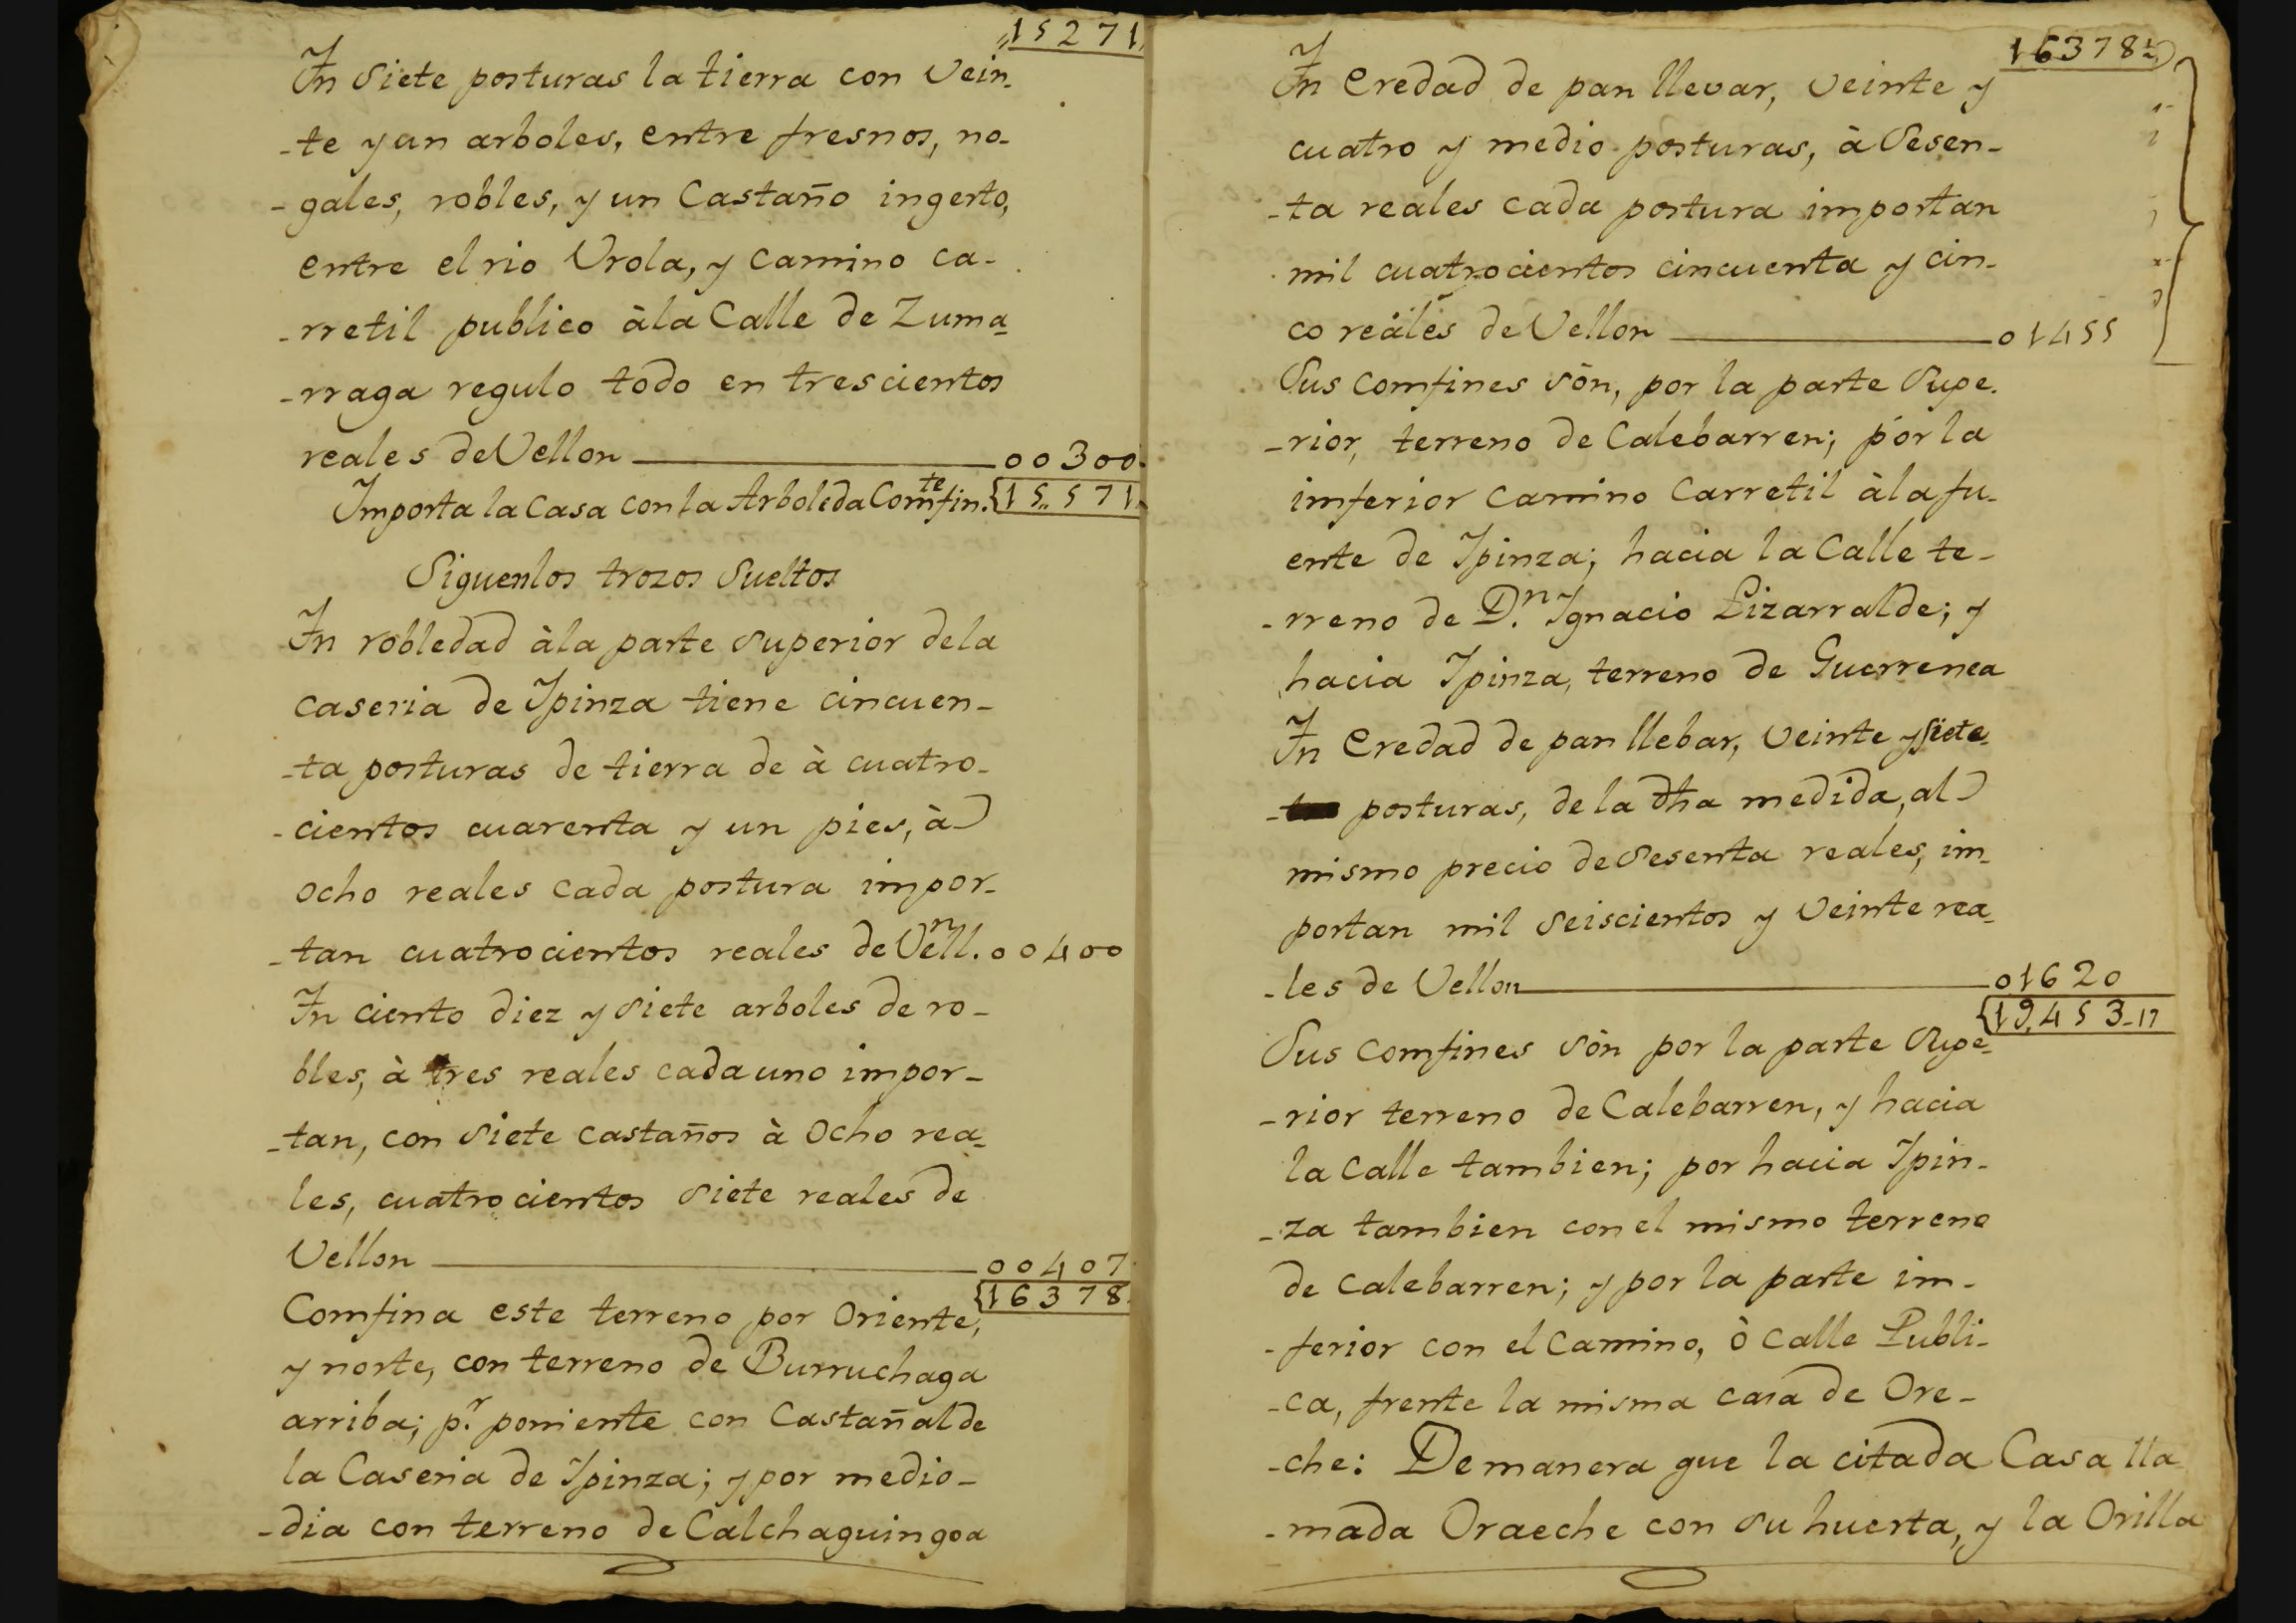 15271
Yn siete posturas la tierra con vein-
-te y un arboles, entre fresnos, no-
-gales, robles, y un Castaño ingerto,
entre el rio Vrola, y camino ca-
-rretil publico à la Calle de Zuma
-rraga regulo todo en trescientos
reales de Vellon ——— 00300
Ymporta la Casa con la Arboleda Comfin.te {15..571
Siguen los trozos sueltos
Yn robledad à la parte superior de la
caseria de Ypinza tiene cincuen-
-ta posturas de tierra de à cuatro-
-cientos cuarenta y un pies, à
ocho reales cada postura impor-
-tan cuatrocientos reales de Vell.n 00400
Yn ciento diez y siete arboles de ro-
bles, à tres reales cada uno impor-
-tan, con siete castaños à ocho rea-
les, cuatrocientos siete reales de
Vellon ——— 00407
{16378
Comfina este terreno por Oriente,
y norte, con terreno de Burruchaga
arriba; p.r poniente con Castañal de
la Caseria de Ypinza; y por medio-
-dia con terreno de Calchaguingoa
16378
Yn eredad de pan llevar, veinte y
cuatro y medio posturas, à sesen-
-ta reales cada postura importan
mil cuatrocientos cincuenta y cin-
co reales de Vellon ——— 01455
Sus comfines sòn, por la parte supe-
-rior, terreno de Calebarren; por la
imferior camino carretil à la fu-
ente de Ypinza; hacia la Calle te-
-rreno de D.n Ygnacio Lizarralde; y
hacia Ypinza, terreno de Guerrenea
Yn eredad de pan llebar, veinte y siete
posturas, de la dha medida, al
mismo precio de sesenta reales, im-
portan mil seiscientos y veinte rea-
-les de Vellon ——— 01620
{19.453-17
Sus comfines sòn por la parte supe-
-rior terreno de Calebarren, y hacia
la Calle tambien; por hacia Ypin-
-za tambien con el mismo terreno
de Calebarren; y por la parte im-
-ferior con el Camino, ò calle Publi-
-ca, frente la misma casa de Ore-
-che: De manera que la citada Casa lla
-mada Oraeche con su huerta, y la Orilla